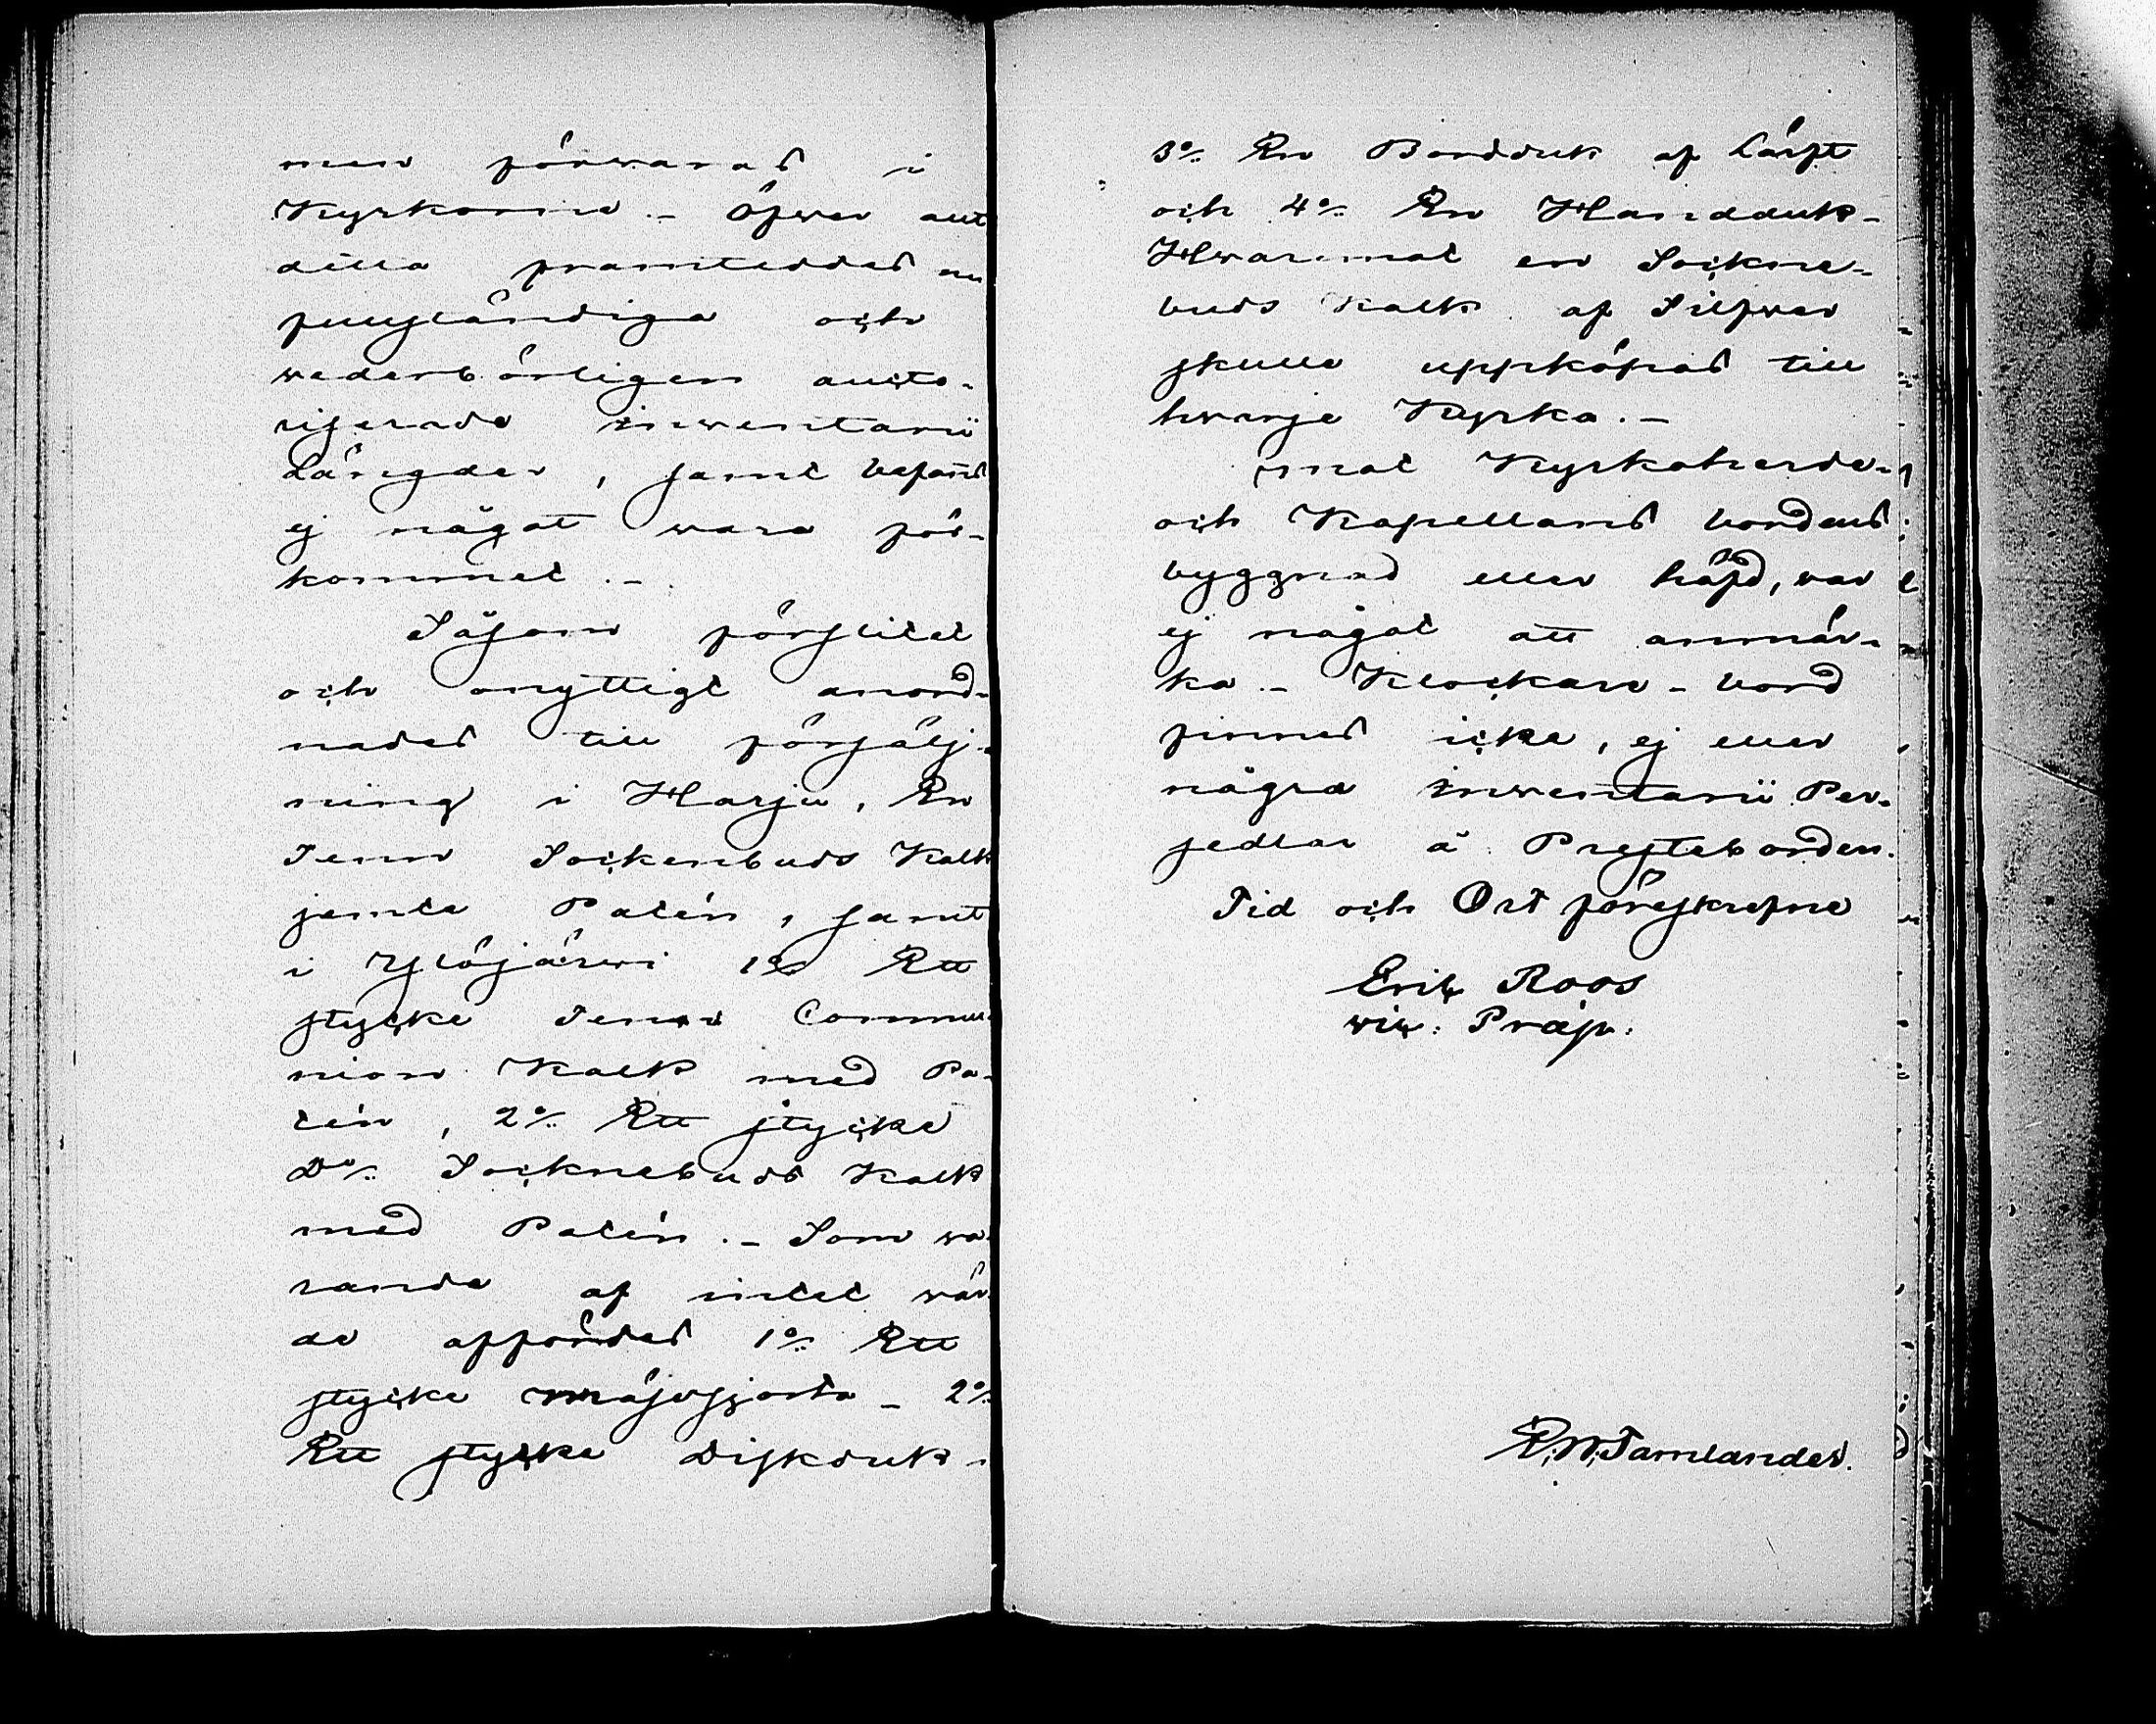 men förwaras i
Kyrkorne. – Öfwer allt
detta framteddes en
fullständiga och
wederbörligen aucto-
riserade Inwentarii
Längder, samt befans
ej något wara för-
kommet. –
Såsom förslitet
och onyttigt anord-
nades till försälj-
ning i Harju, En
Tenn Sockenbuds Kalk
jemte Patén, samt
i Ylöjärwi 1o Ett
stycke Tenn Commu-
nion Kalk med Pa-
tén, 2o Ett stycke
Do Socknebuds Kalk
med Patén. – Som wa-
rande af intet wär-
de affördes 1o Ett
stycke Mässhjorta – 2o
Ett stycke Diskduk –
3o En Bordduk af Lärft
och 4o En Handduk –
Hwaremot en Sockne-
buds Kalk af Silfwer
skulle uppköpas till
hwarje Kyrka. –
Mot Kyrkoherde-
och Kapellans bordens
byggnad eller häfd, war
ej något att anmär-
ka. – Klockare-bord
finnes icke, ej eller
några Inwentarii Per-
sedlar å Presteborden.
Tid och Ort föreskrefne
Eric Roos
vic: Præp:
E. W. Tamlander.